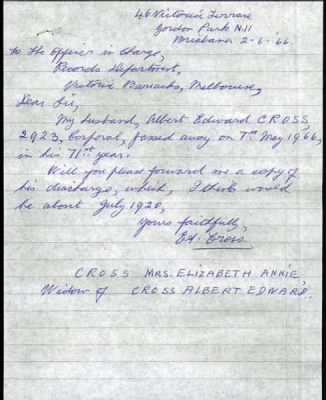 46 Victoria Terrace
Gordon Park N.11
Brisbane 2-6-'66
To The Officer in Charge,
Records Department,
Victoria Barracks, Melbourne,
Dear Sir,
My husband, Albert Edward CROSS,
2923, Corporal, passed away on 7th May 1966,
in his 71st year.
Will you please forward me a copy of
his discharge, which, I think would
be about July 1920,
Yours faithfully,
E.A. Cross
CROSS MRS. ELIZABETH ANNIE,
Widow of CROSS ALBERT EDWARD.